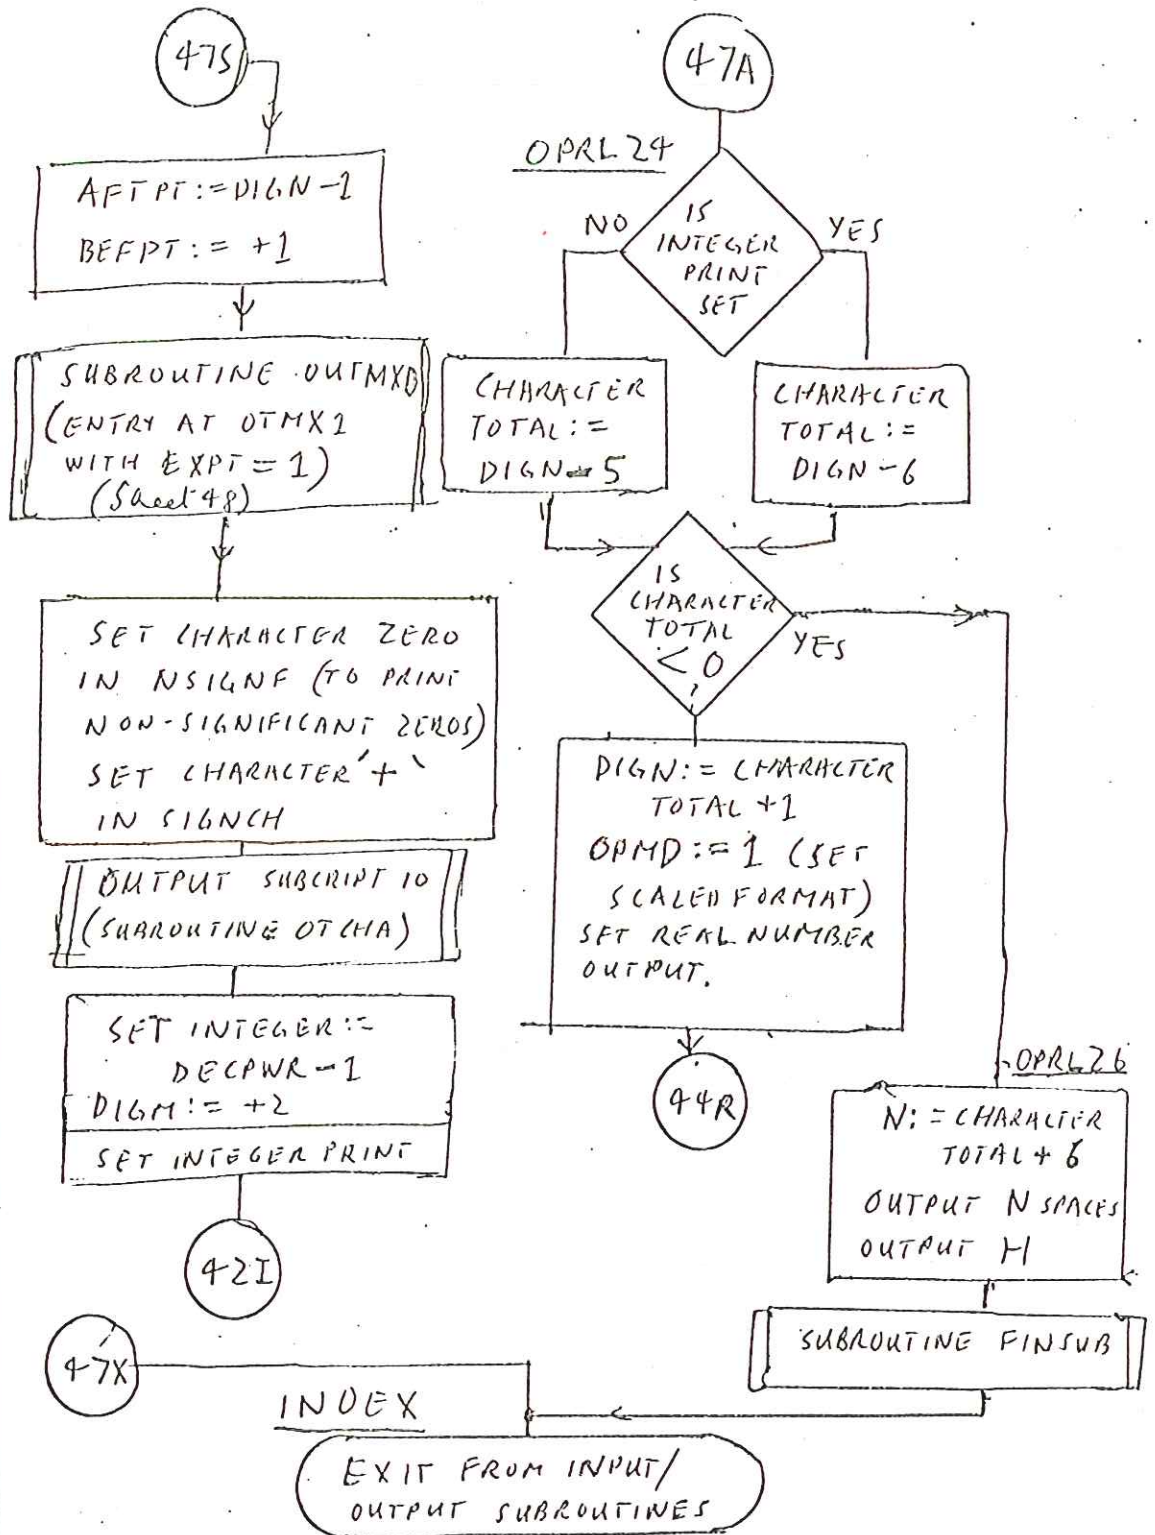 47S
AFTPT:=DIGN-1
BEFPT:= +1
SUBROUTINE OUTMXD
(ENTRY AT OTMX1
WITH EXPT=1)
(Sheet 48)
SET CHARACTER ZERO
IN NSIGNF (TO PRINT
NON-SIGNIFICANT ZEROS)
SET CHARACTER '+'
IN SIGNCH
OUTPUT SUBCRIPT 10
(SUBROUTINE OTCHA)
SET INTEGER:=
DECPWR-1
DIGM:= +2
SET INTEGER PRINT
42I
47A
OPRL24
IS
INTEGER
PRINT
SET
NO
YES
CHARACTER
TOTAL:=
DIGN-5
CHARACTER
TOTAL:=
DIGN-6
IS
CHARACTER
TOTAL
<0
YES
DIGN:= CHARACTER
TOTAL +1
OPMD:=1 (SET
SCALED FORMAT)
SET REAL NUMBER
OUTPUT.
44R
OPRL26
N:=CHARACTER
TOTAL+6
OUTPUT N SPACES
OUTPUT H
SUBROUTINE FINSUB
47X
INDEX
EXIT FROM INPUT/
OUTPUT SUBROUTINES